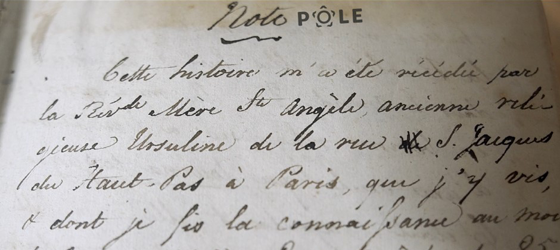 Note PÔLE
Cette histoire m'a été cédée par
la Rév^de Mère S^te Angèle, ancienne reli
gieuse Ursuline de la rue S. Jacques
du Haut-Pas à Paris, que j'y vis,
& dont je fis la connaissance au mo